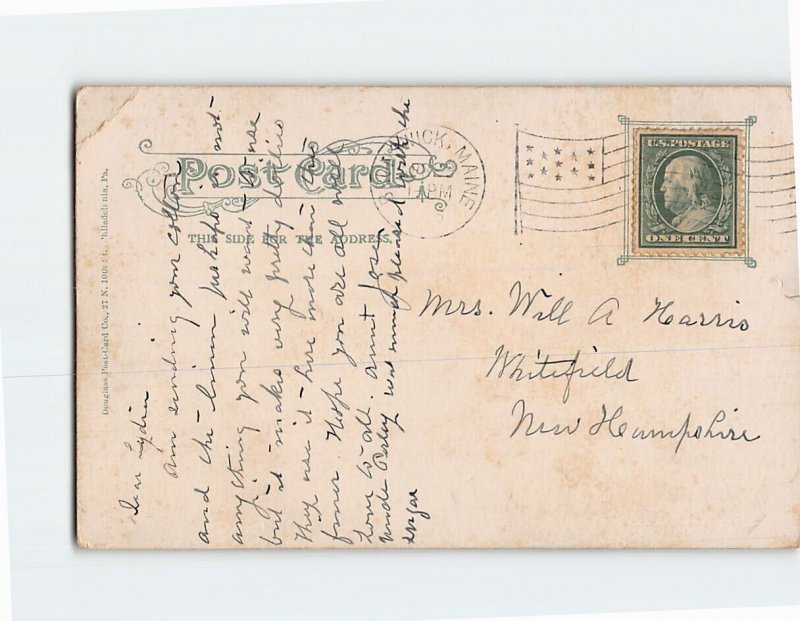 Post Card
THIS SIDE FOR THE ADDRESS.
MAINE
PM
U.S. POSTAGE
ONE CENT
Mrs. Will A Harris
Whitefield
New Hampshire
Douglass Post Card Co., 27 N. 10th St., Philadelphia, Pa.
Dear Lydia
Am sending you cotton
and the linen perhaps is not
anything you will want to use
but it makes very pretty doilies
They use it here more than
finer. Hope you are all well
Love to all. Aunt Josie
Uncle Parley was much pleased with the
sugar